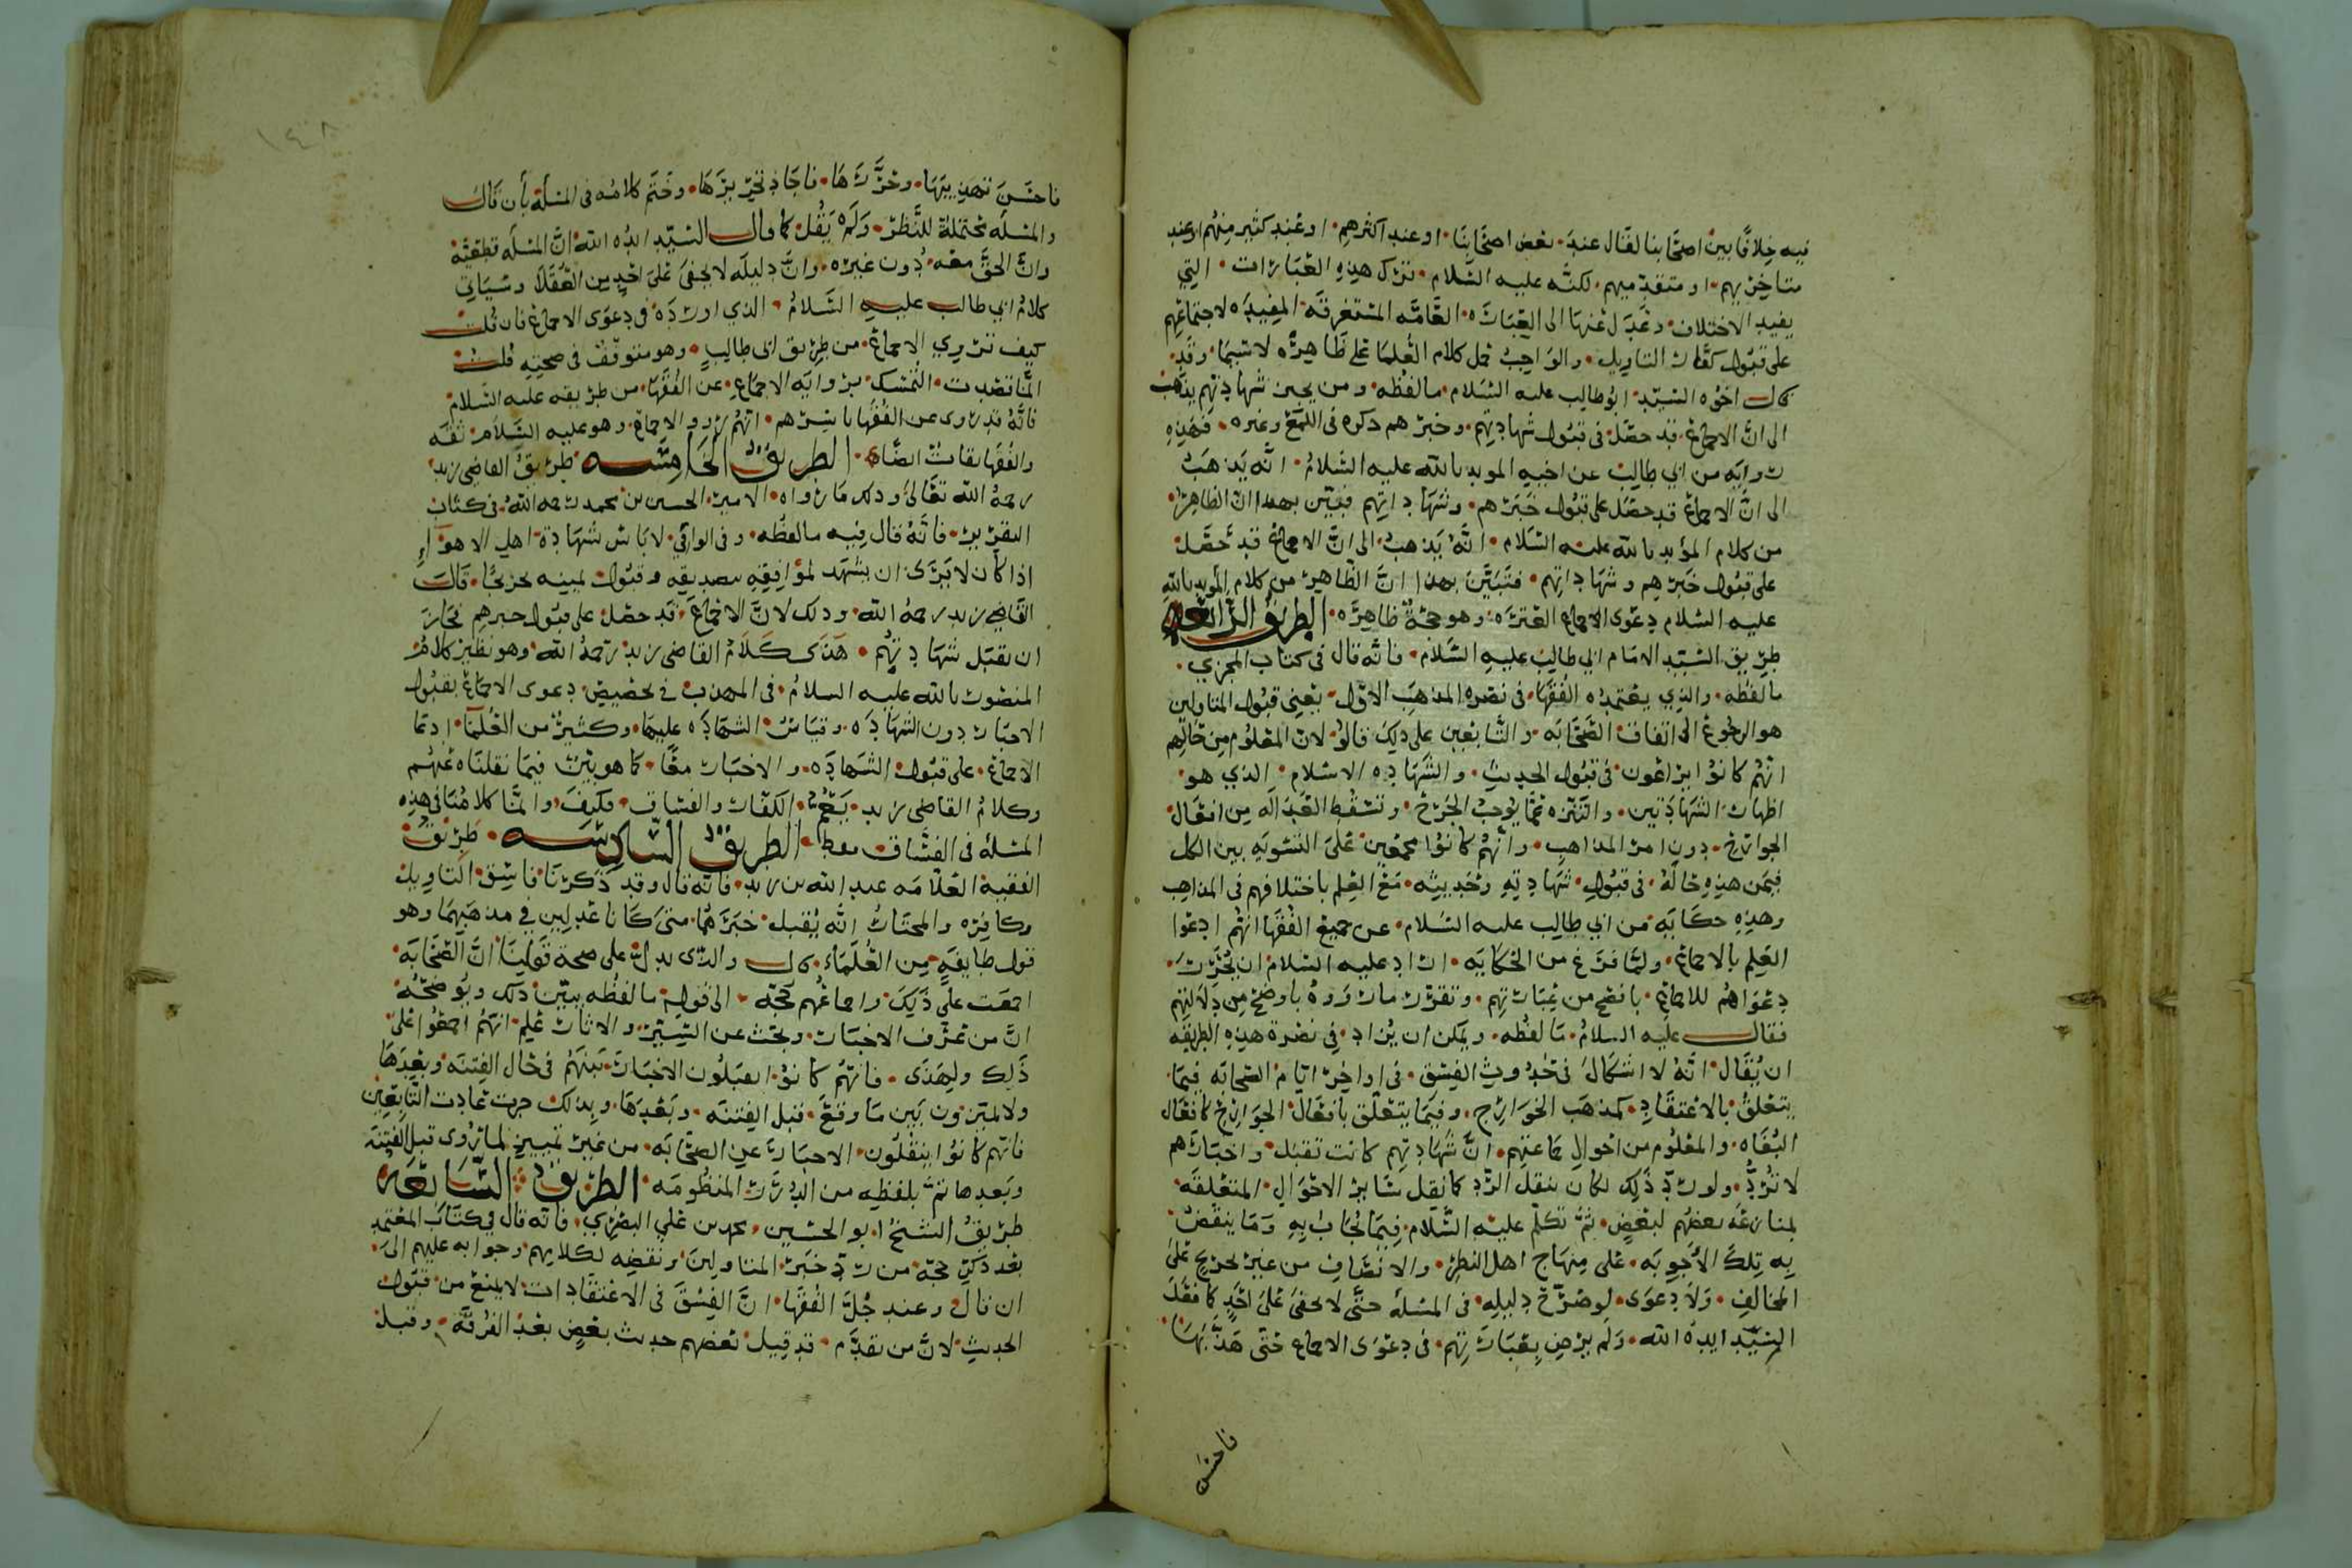 فيه خلافًا بين اصحابنا لقال عند بعض اصحابنا او عند اكثرهم او عند كثير منهم او عند
متاخريهم او متقدميهم لكنه عليه السلام ترك هذه العبارات التي
يفيد الاختلاف وعدل عنها الى العباره العامه المستغرقه المفيده لاجتماعهم
على قبول كفار التاويل والواجب حمل كلام العلما على ظاهره لا سيما وقد
قال اخوه السيد ابو طالب عليه السلام ما لفظه ومن يجيز شهادتهم يذهب
الى ان الاجماع قد حصل في قبول شهادتهم وخبرهم ذكره في اللمع وغيره فهذه
روايه من ابي طالب عن اخيه المويد بالله عليه السلام انه يذهب
الى ان الاجماع قد حصل على قبول خبرهم وشهاداتهم فتبين بهذا ان الظاهر
من كلام المؤيد بالله عليه السلام انه يذهب الى ان الاجماع قد حصل
على قبول خبرهم وشهاداتهم فتبين بهذا ان الظاهر من كلام المويد بالله
عليه السلام دعوى الاجماع العتره وهو حجة ظاهره الطريق الرابعه
طريق السيد الامام ابي طالب عليه السلام فانه قال في كتاب المجزي
ما لفظه والذي يعتمده الفقها في نصره المذهب الاول يعني قبول المتاولين
هو الرجوع الى اتفاق الصحابه والتابعين على ذلك قالو لان المعلوم من حالهم
انهم كانوا يراعون في قبول الحديث والشهاده الاسلام الذي هو
اظهار الشهادتين والتنزه عما يوجب الجرح وتسقط العداله من افعال
الجوارح دون امر المذاهب وانهم كانوا مجمعين على التسويه بين الكل
فيمن هذه حاله في قبول شهادته وحديثه مع العلم باختلافهم في المذاهب
وهذه حكايه من ابي طالب عليه السلام عن جميع الفقها انهم ادعوا
العلم بالاجماع ولما فرغ من الحكايه اراد عليه السلام ان يحرر
دعواهم للاجماع بافصح من عبارتهم وتقرر ما رووه باوضح من دلالتهم
فقال عليه السلام ما لفظه ويمكن ان يزاد في نصرة هذه الطريقه
ان يقال انه لا اشكال في حدوث الفسق في اواخر ايام الصحابه فيما
يتعلق بالاعتقاد كمذهب الخوارج وفيما يتعلق بافعال الجوارح كافعال
البغاه والمعلوم من احوال جماعتهم ان شهادتهم كانت تقبل واخبارهم
لا ترد ولو رد ذلك لكان ينقل الرد كما نقل سائر الاحوال المتعلقه
بمنازعه بعضهم لبعض ثم تكلم عليه السلام فيما يجاب به وما ينقض
به تلك الاجوبه على منهاج اهل النظر والانصاف من غير تحريج على
المخالف ولا دعوى لوضوح دليله في المسله حتى لا يخفى على احد كما فعل
السيد ايده الله ولم يرض بعبارتهم في دعوى الاجماع حتى هذبها
فاحسن
١٤٨
فاحسن تهذيبها وحررها فاجاد تحريرها وختم كلامه في المسلة بأن قال
والمسله محتملة للنظر ولم يقل كما قال السيد ايده الله ان المسله قطعية
وان الحق معه دون غيره وان دليله لا يخفى على احد من العقلا وسياتي
كلام ابي طالب عليه السلام الذي اورده في دعوى الاجماع فان قلت
كيف تروي الاجماع من طريق ابي طالب وهو متوقف في صحته قلت
انما قصدت التمسك بروايه الاجماع عن الفقها من طريقه عليه السلام
فانه قد روى عن الفقها باسرهم انهم رووا الاجماع وهو عليه السلام ثقه
والفقها ثقات ايضًا الطريق الخامسه طريق القاضي زيد
رحمه الله تعالى وذكر ما رواه الامير الحسين بن محمد رحمه الله في كتاب
التقرير فانه قال فيه ما لفظه وفي الوافي لا باس شهادة اهل الاهواء
اذا كان لا يرى ان يشهد لموافقه بتصديقه وقبول يمينه تحرجًا قال
القاضي زيد رحمه الله وذلك لان الاجماع قد حصل على قبول خبرهم فجاز
ان تقبل شهادتهم هذى كلام القاضي زيد رحمه الله وهو نظير كلام
المنصور بالله عليه السلام في المهذب في تخصيص دعوى الاجماع بقبول
الاخبار دون الشهاده وقياس الشهاده عليها وكثير من العلما ادعا
الاجماع على قبول الشهاده والاخبار معًا كما هو بين فيما نقلناه عنهم
وكلام القاضي زيد يعم الكفار والفساق فكيف وانما كلامنا في هذه
المسله في الفساق فقط الطريق السادسه طريق
الفقيه العلامه عبد الله بن زيد فانه قال وقد ذكرنا فاسق التاويل
وكافره والمختار انه يقبل خبرهما متى كانا عدلين في مذهبهما وهو
قول طايفه من العلماء قال والذي يدل على صحة قولنا ان الصحابه
اجمعت على ذلك واجماعهم حجه الى قوله ما لفظه يبين ذلك ويوضحه
ان من عرف الاخبار وبحث عن السير والاثار علم انهم اجمعوا على
ذلك ولهذى فانهم كانوا يقبلون الاخبار بينهم في حال الفتنه وبعدها
ولا يميزون بين ما وقع قبل الفتنه وبعدها وبذلك جرت عادت التابعين
فانهم كانوا ينقلون الاخبار عن الصحابه من غير تمييز لما روى قبل الفتنه
وبعدها تم بلفظه من الدرر المنظومه الطريق السابعه
طريق الشيخ ابو الحسين محمد بن علي البصري فانه قال في كتاب المعتمد
بعد ذكر حجة من رد خبر المتاولين ونقضه لكلامهم وجوابه عليهم الى
ان قال وعند جل الفقها ان الفسق في الاعتقادات لا يمنع من قبول
الحديث لان من تقدم قد قبل بعضهم حديث بعض بعد الفرقة وقبل